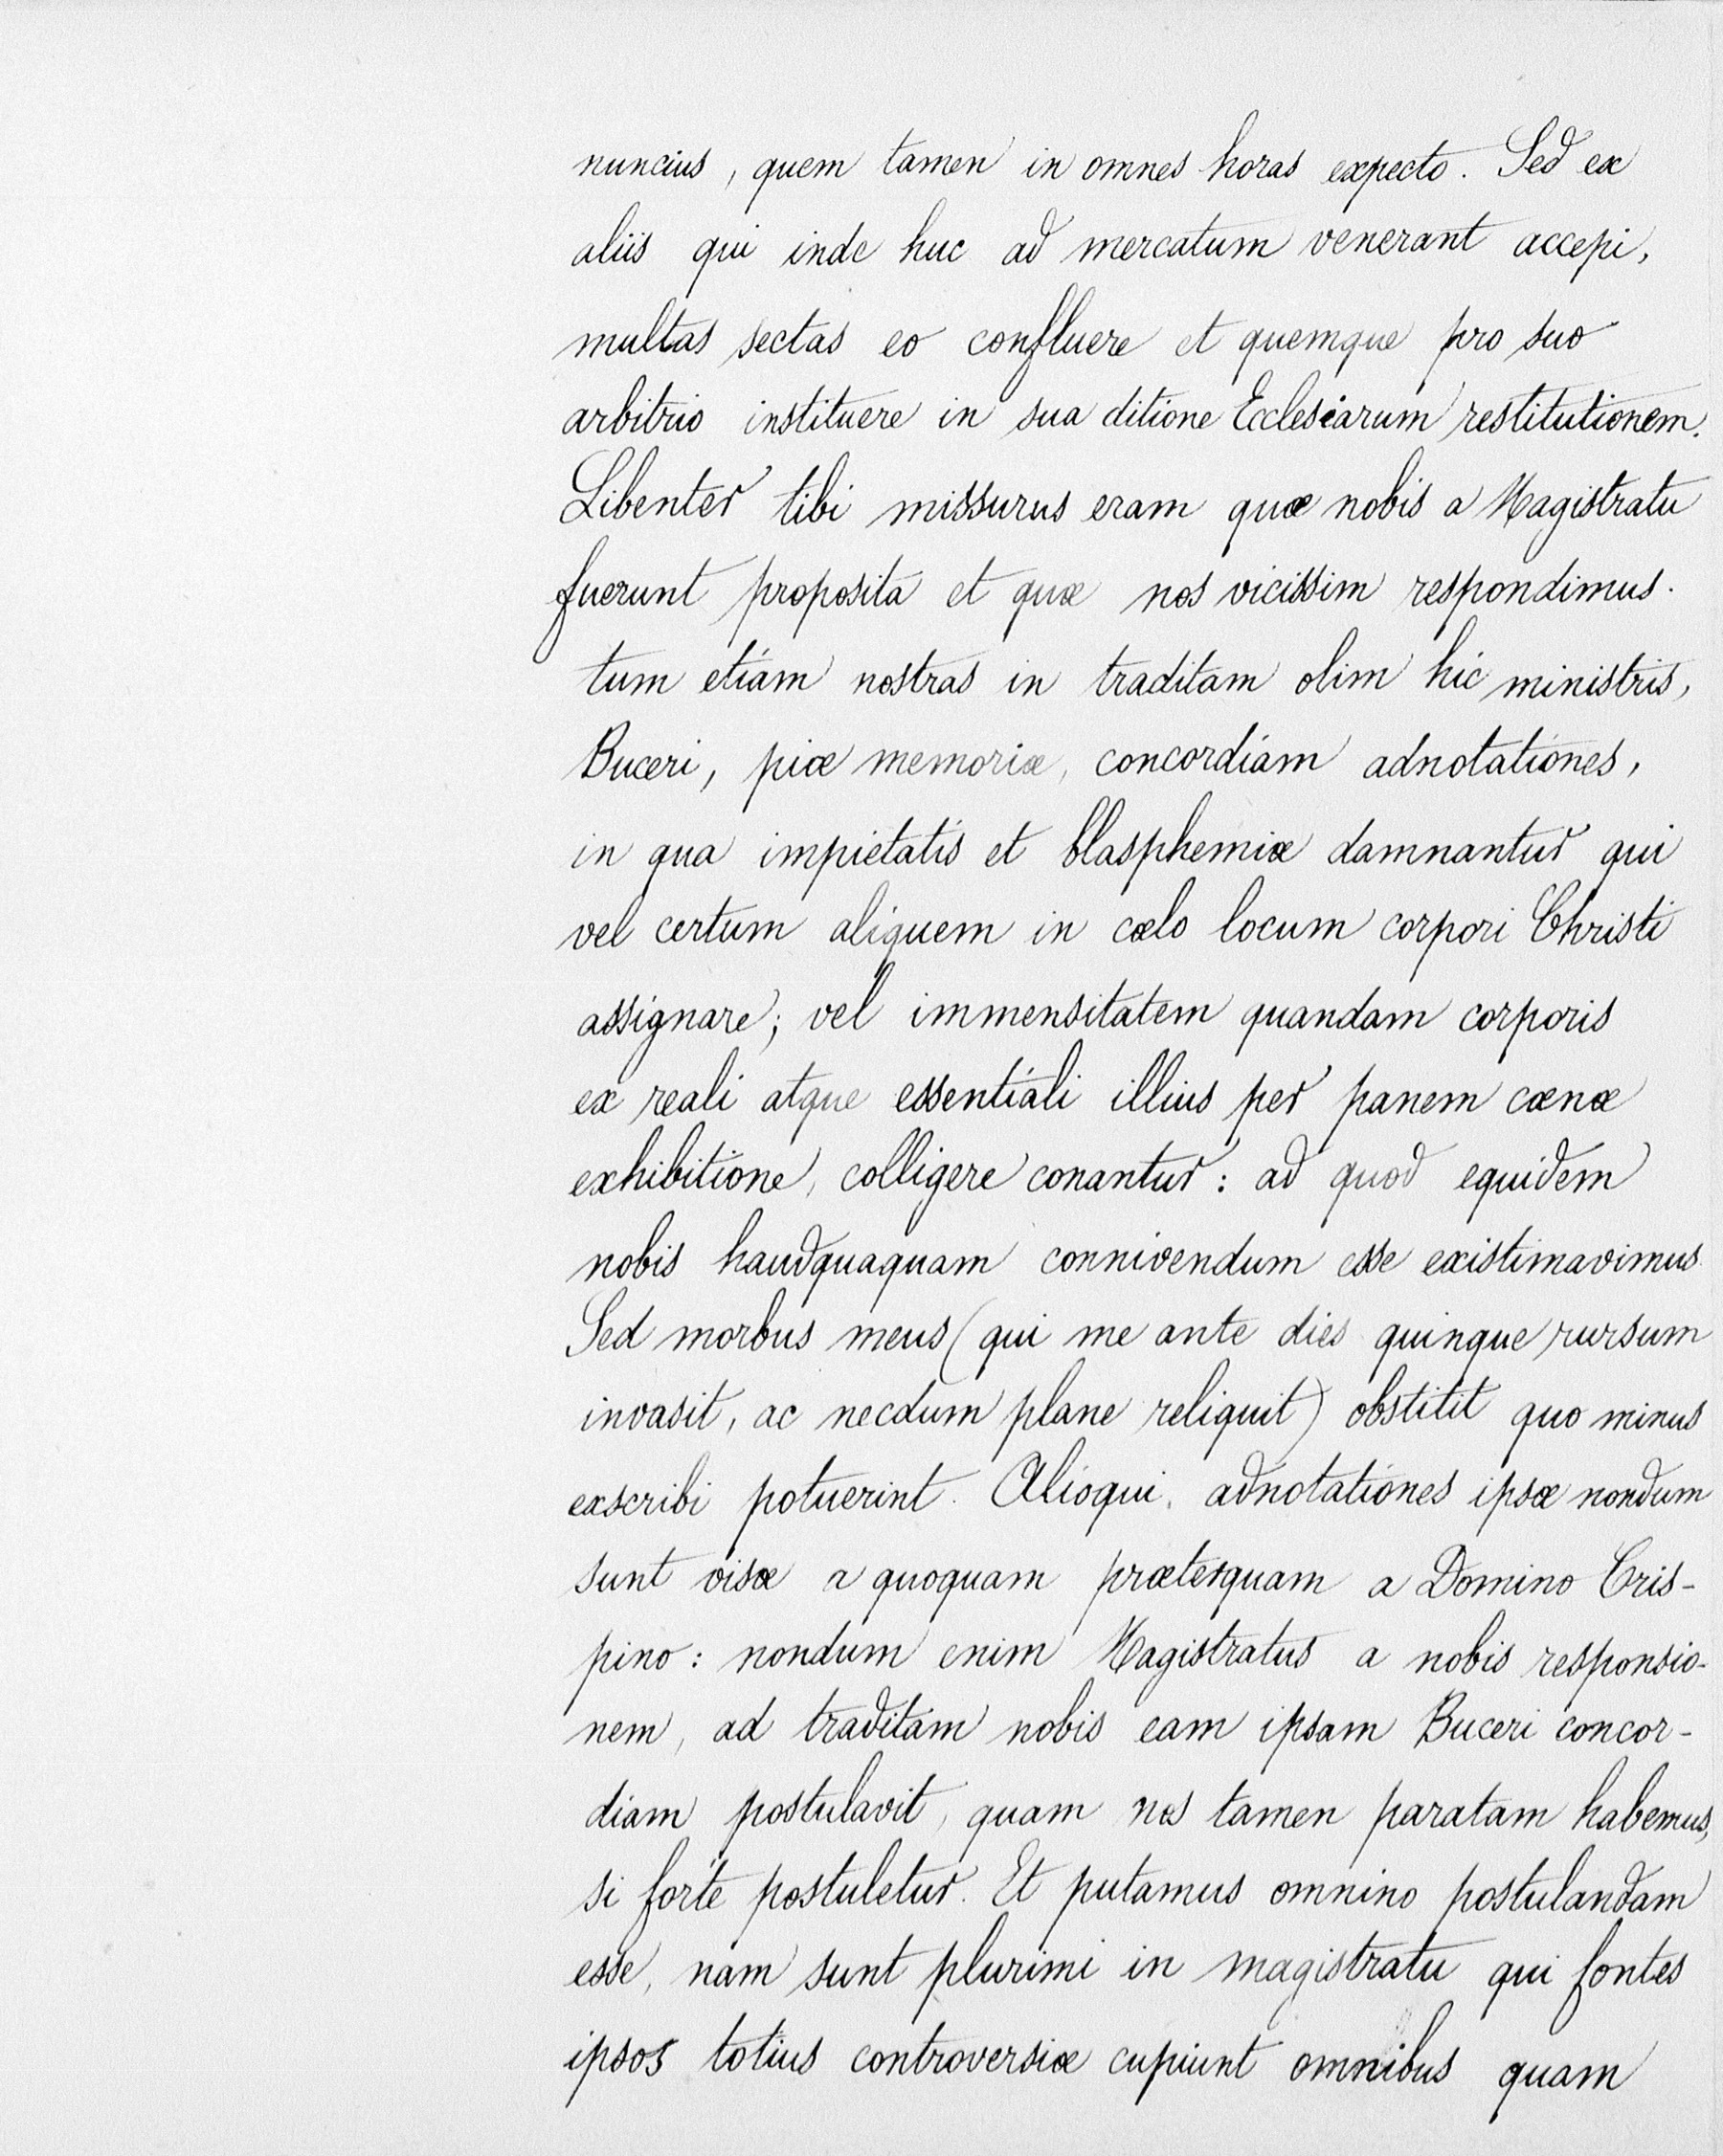 nuncius, quem tamen in omnes horas expecto. Sed ex
aliis qui inde huc ad mercatum venerant accepi,
multas sectas eo confluere et quemque pro suo
arbitrio instituere in sua ditione Ecclesiarum restitutionem.
Libenter tibi missurus eram quæ nobis a Magistratu
fuerunt proposita et quæ nos vicissim respondimus.
tum etiam nostras in traditam olim hic ministris,
Buceri, piæ memoriæ, concordiam adnotationes,
in qua impietatis et blasphemiæ damnantur qui
vel certum aliquem in cœlo locum corpori Christi
assignare; vel immensitatem quandam corporis
ex reali atque essentiali illius per panem cœnæ
exhibitione, colligere conantur: ad quod equidem
nobis haudquaquam connivendum esse existimavimus.
Sed morbus meus (qui me ante dies quinque rursum
invasit, ac necdum plane reliquit) obstitit quo minus
exscribi potuerint. Alioqui, adnotationes ipsæ nondum
sunt visæ a quoquam præterquam a Domino Cris-
pino: nondum enim Magistratus a nobis responsio-
nem, ad traditam nobis eam ipsam Buceri concor-
diam postulavit, quam nos tamen paratam habemus,
si forte postuletur. Et putamus omnino postulandam
esse, nam sunt plurimi in magistratu qui fontes
ipsos totius controversiæ cupiunt omnibus quam